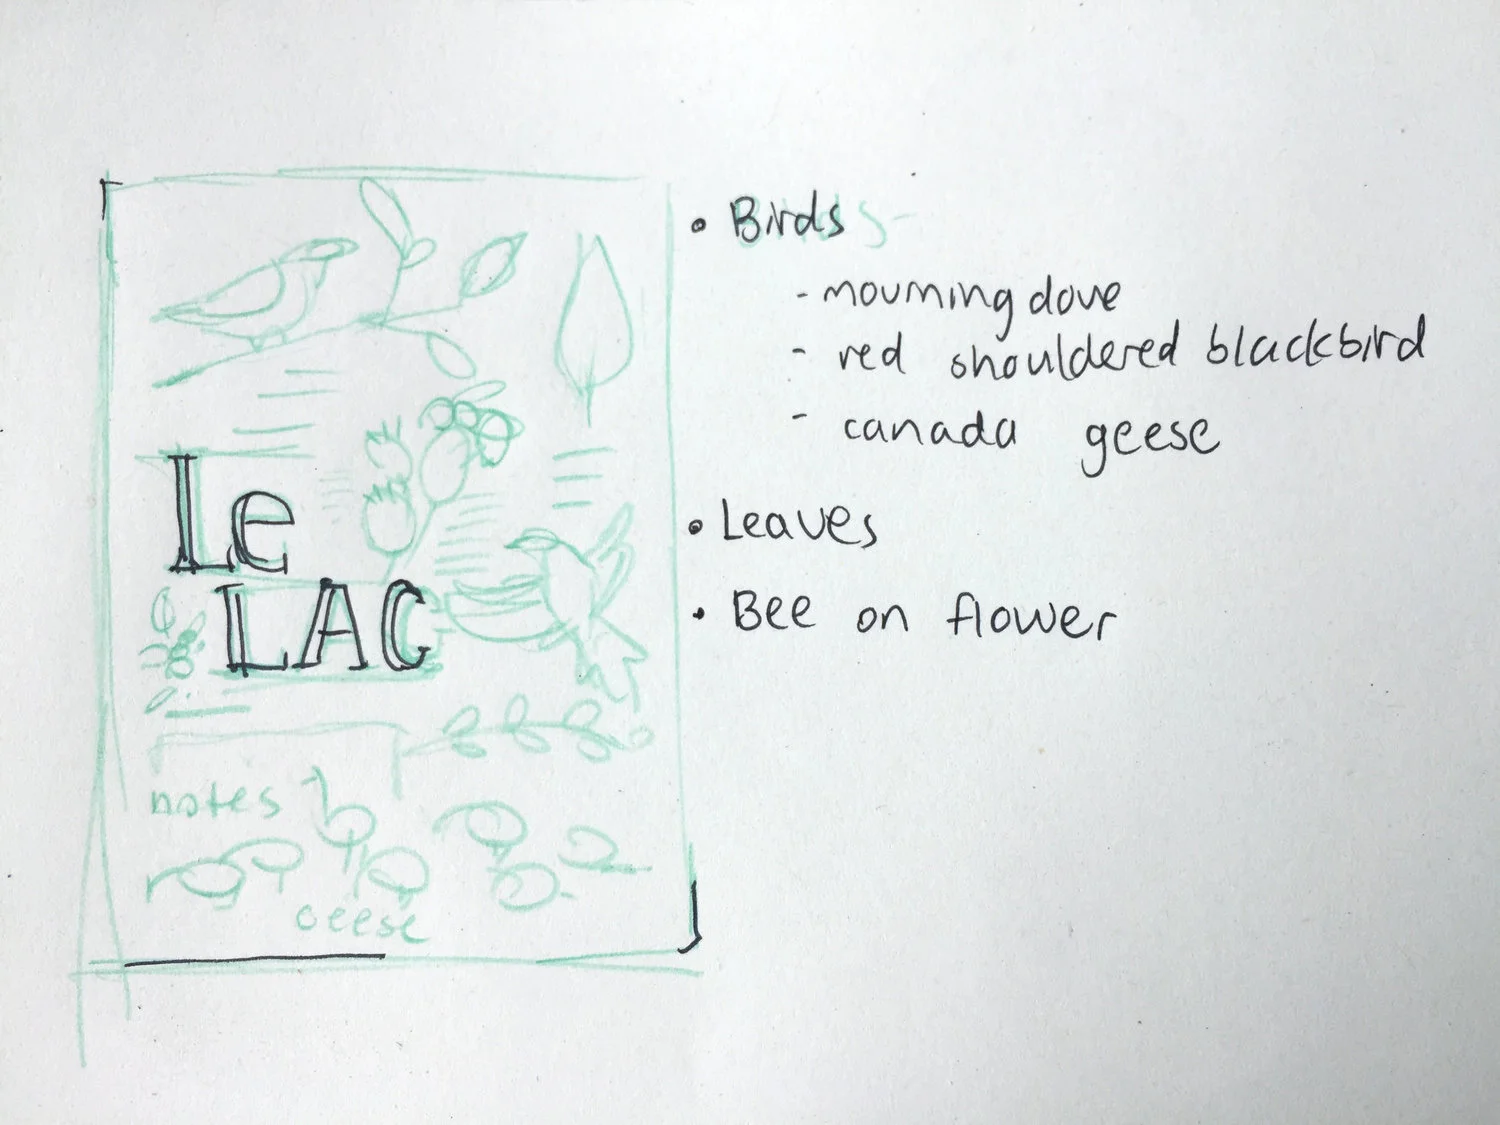 Le
LAC
notes
Geese
• Birds
- mourning dove
- red shouldered blackbird
- canada geese
• Leaves
• Bee on flower